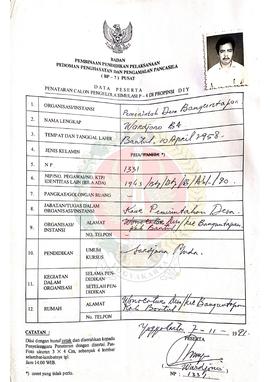 BADAN
PEMBINAAN PENDIDIKAN PELAKSANAAN
PEDOMAN PENGHAYATAN DAN PENGAMALAN PANCASILA
( BP - 7 ) PUSAT
DATA PESERTA
PENATARAN CALON PENGELOLA SIMULASI P - 4 DI PROPINSI DIY
1. ORGANISASI/INSTANSI Pemerintah Desa Banguntapan
2. NAMA LENGKAP Wardjono BA
3. TEMPAT DAN TANGGAL LAHIR Bantul, 10 April 1958.
4. JENIS KELAMIN PRIA/WANITA *)
5. N P 1331
6. NIP/NO. PEGAWAI/NO. KTP/
IDENTITAS LAIN (BILA ADA)
7. PANGKAT/GOLONGAN RUANG
8. JABATAN/TUGAS DALAM
ORGANISASI/INSTANSI Kaur Pemerintahan Desa.
9. ORGANISASI/
INSTANSI
ALAMAT Banguntapan
Kab Bantul
NO. TELPON
10. PENDIDIKAN
UMUM Sardjana Muda.
KURSUS
11. KEGIATAN
DALAM
ORGANISASI
SELAMA PEN-
DIDIKAN
SETELAH PEN-
DIDIKAN
12. RUMAH
ALAMAT Banguntapan
Kab Bantul
NO. TELPON
CATATAN :
Yogyakarta, 7 - 11 - 1991.
PESERTA
Diisi dengan huruf cetak dan diserahkan kepada
Penyelenggara Penataran dengan disertai Pas
Foto ukuran 3 X 4 Cm, sebanyak 4 lembar
selambat-lambatnya tgl.
Jam 14.00 WIB.
( Wardjono )
N P : 1331
*) coret yang tidak perlu.